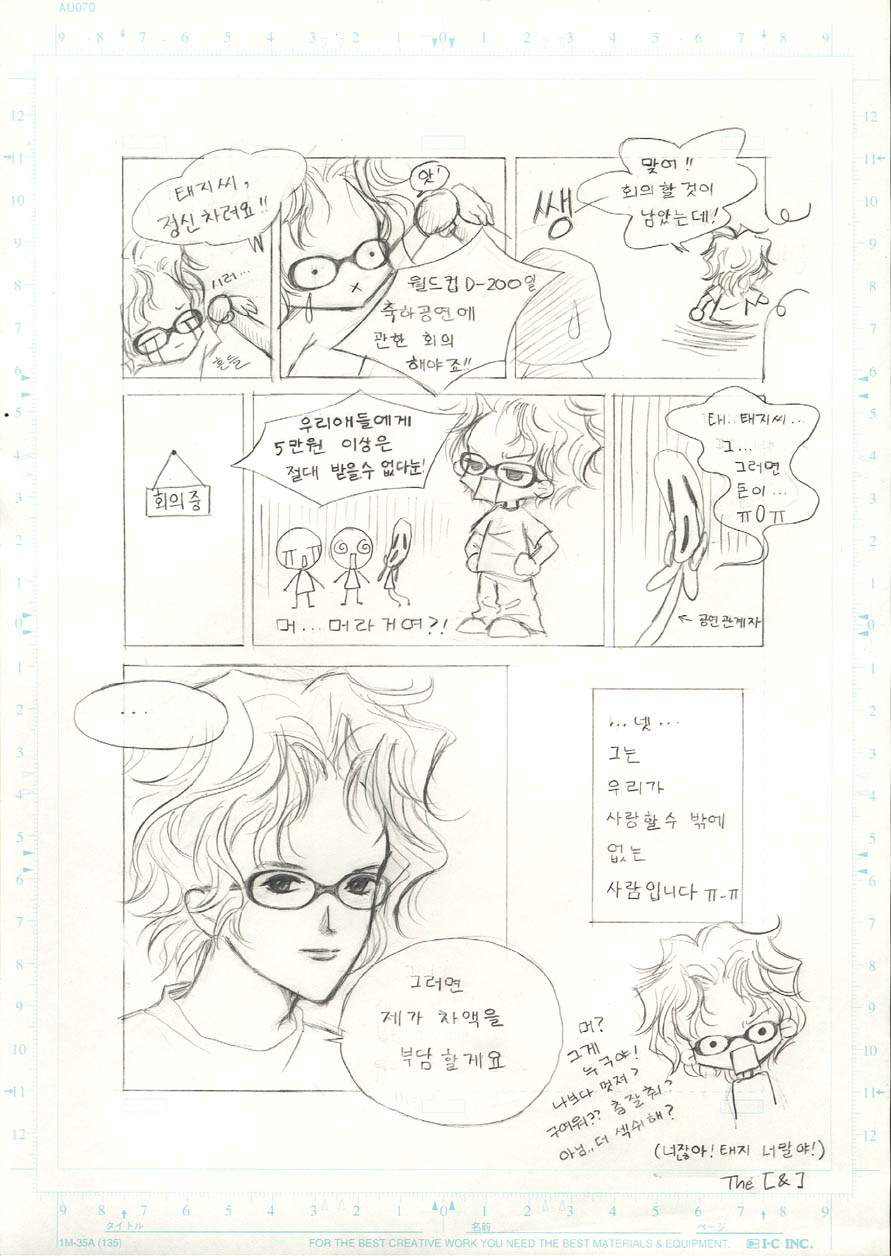 AU070
9 8 7 6 5 4 3 2 0 2 3 4 5 6 7 8 9
태지씨,
정신차려요!!
시러...
흔들
앗!
월드컵 D-200일
축하공연에
관한 회의
해야죠!!
쌩
맞어!!
회의할 것이
남았는데!
회의중
우리애들에게
5만원 이상은
절대 받을수 없다눈!
머...머라거여?!
태..태지씨...
그...
그러면
돈이...
ㅠOㅠ
← 공연관계자
...
그러면
제가 차액을
부담할게요
...넷...
그는
우리가
사랑할수 밖에
없는
사람입니다 ㅠ-ㅠ
머?
그게
누국야!
나보다 멋져?
구여워?? 춤잘춰?
아님..더 섹쉬해?
(너잖아! 태지 너말야!)
The [&]
9 8 7 6 5 4 3 2 0 2 3 4 5 6 7 8 9
タイトル 名前 ページ
1M-35A (135) FOR THE BEST CREATIVE WORK YOU NEED THE BEST MATERIALS & EQUIPMENT. I·C INC.